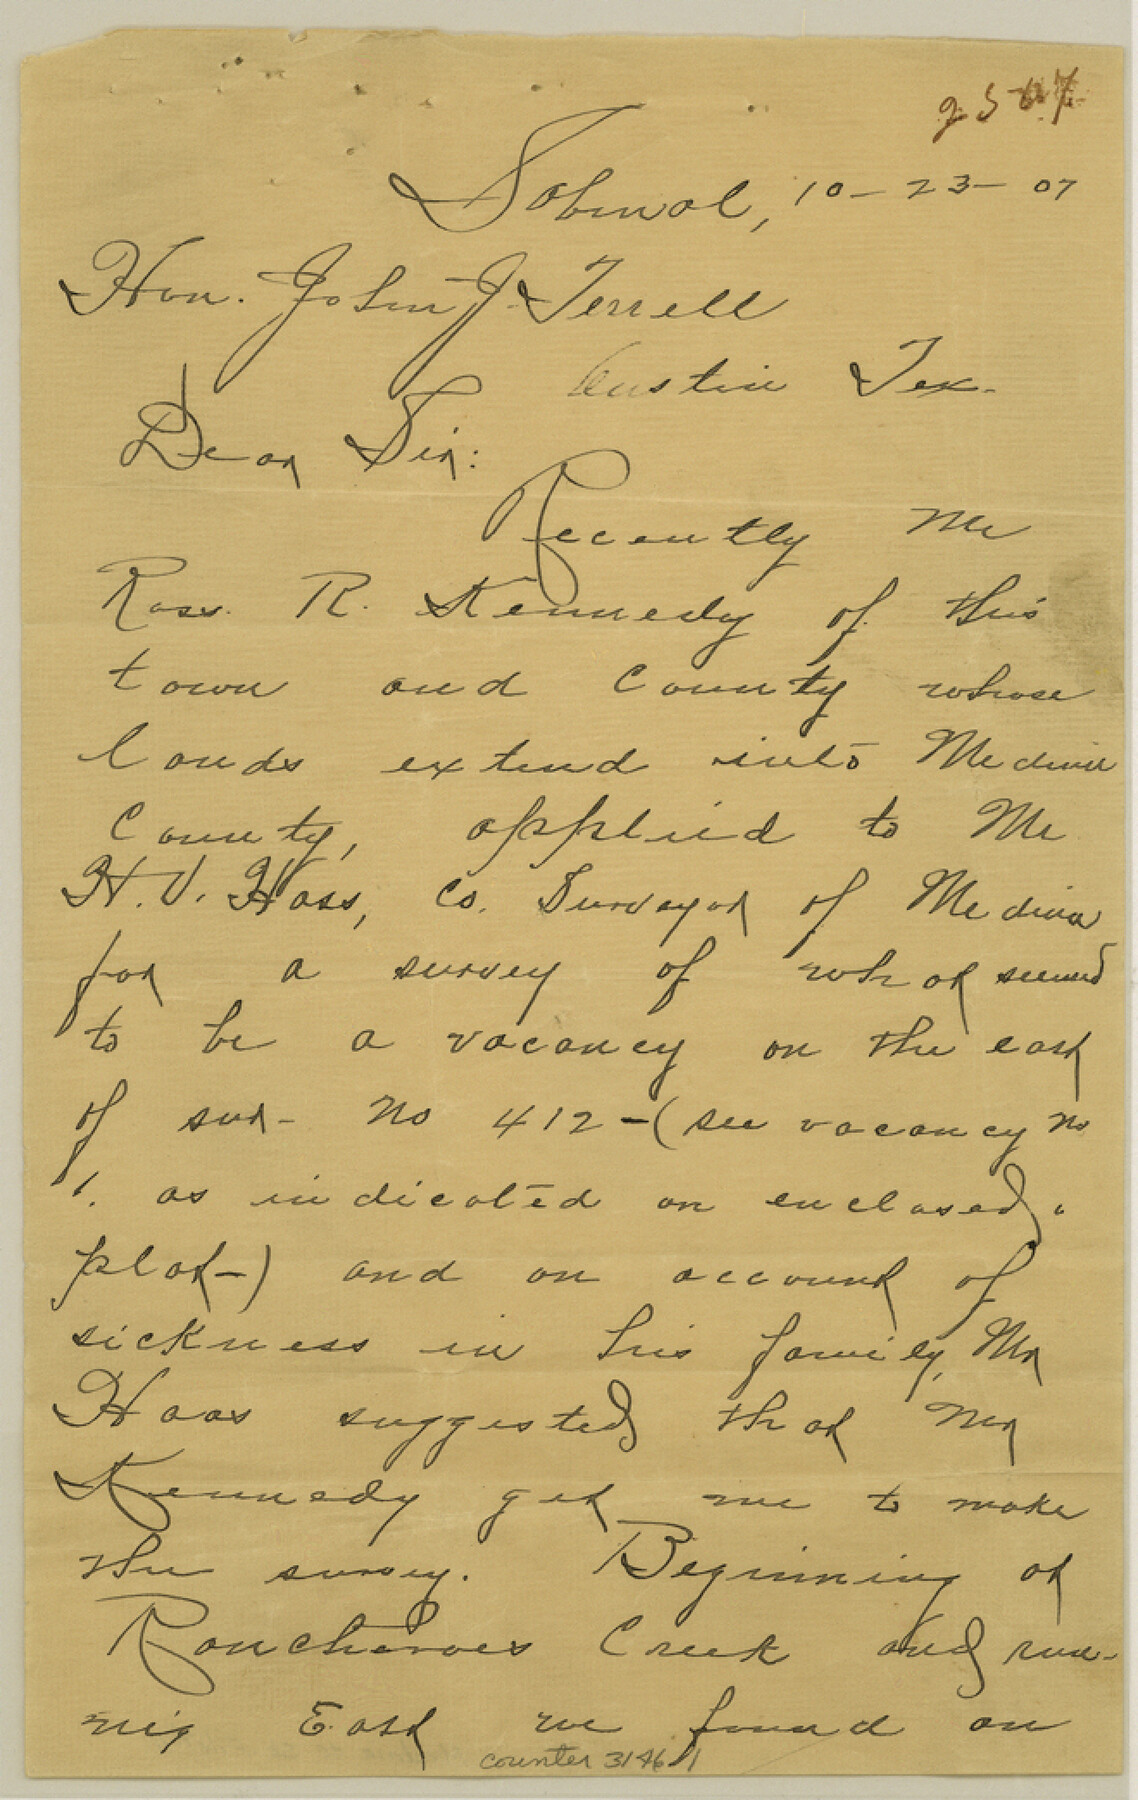 Sabinal, 10-23-07
Hon. John J. Terrell
Austin Tex.
Dear Sir:
Recently Mr
Ross. R. Kennedy of this
town and County whose
lands extend into Medina
County, applied to Mr
H. V. Haas, Co. Surveyor of Medina
for a survey of what seemed
to be a vacancy on the east
of sur- No 412-(see vacancy No
1. as indicated on enclosed
plat-) and on account of
sickness in his family, Mr
Haas suggested that Mr
Kennedy get me to make
the survey. Beginning at
Rancheroes Creek and run-
nig East we found an
counter 31461